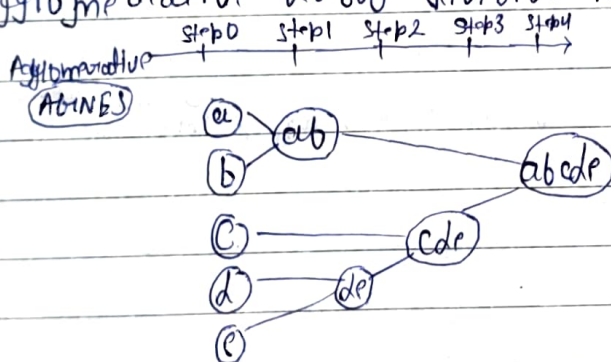 step0 step1 step2 step3 step4
Agglomerative
AGNES
a
ab
b
abcde
C
cde
d
de
e